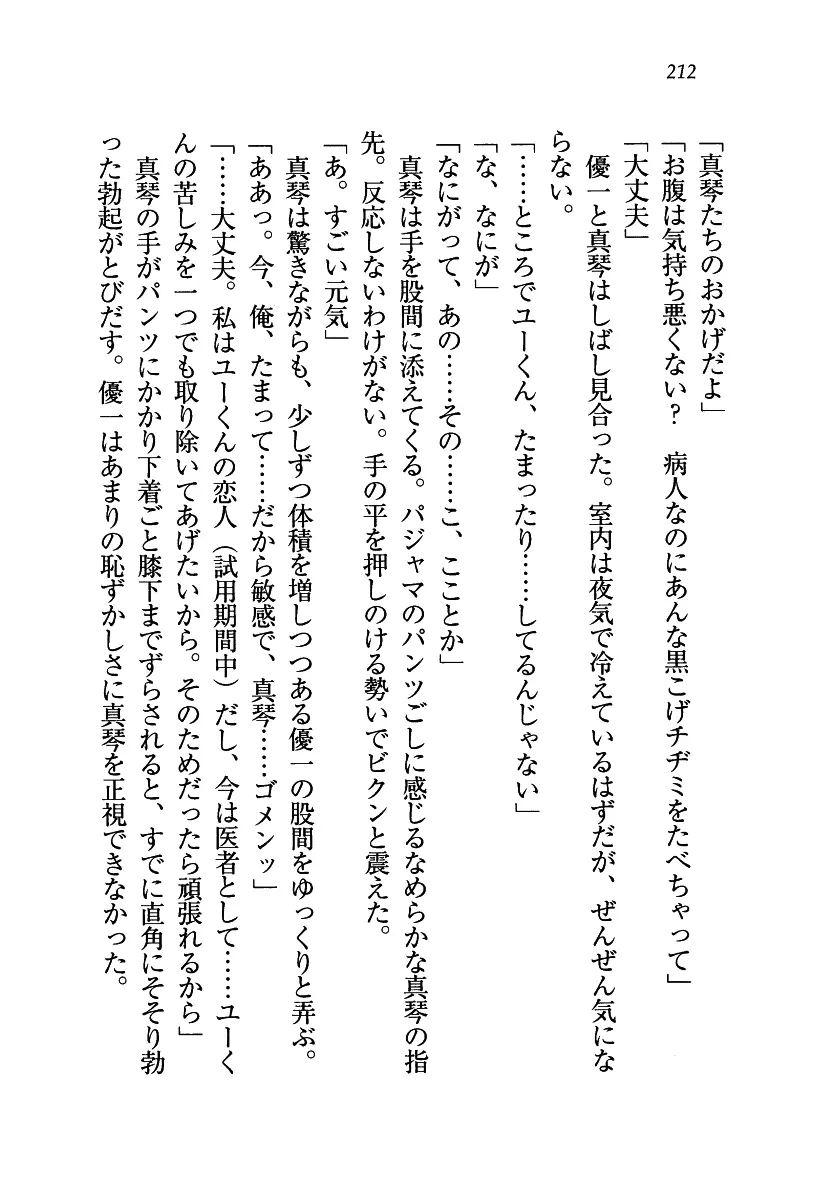 212
「真琴たちのおかげだよ」
「お腹は気持ち悪くない？　病人なのにあんな黒こげチヂミをたべちゃって」
「大丈夫」
　優一と真琴はしばし見合った。室内は夜気で冷えているはずだが、ぜんぜん気にな
らない。
「……ところでユーくん、たまったり……してるんじゃない」
「な、なにが」
「なにがって、あの……その……こ、こことか」
　真琴は手を股間に添えてくる。パジャマのパンツごしに感じるなめらかな真琴の指
先。反応しないわけがない。手の平を押しのける勢いでビクンと震えた。
「あ。すごい元気」
　真琴は驚きながらも、少しずつ体積を増しつつある優一の股間をゆっくりと弄ぶ。
「ああっ。今、俺、たまって……だから敏感で、真琴……ゴメンッ」
「……大丈夫。私はユーくんの恋人（試用期間中）だし、今は医者として……ユーく
んの苦しみを一つでも取り除いてあげたいから。そのためだったら頑張れるから」
　真琴の手がパンツにかかり下着ごと膝下までずらされると、すでに直角にそそり勃
った勃起がとびだす。優一はあまりの恥ずかしさに真琴を正視できなかった。